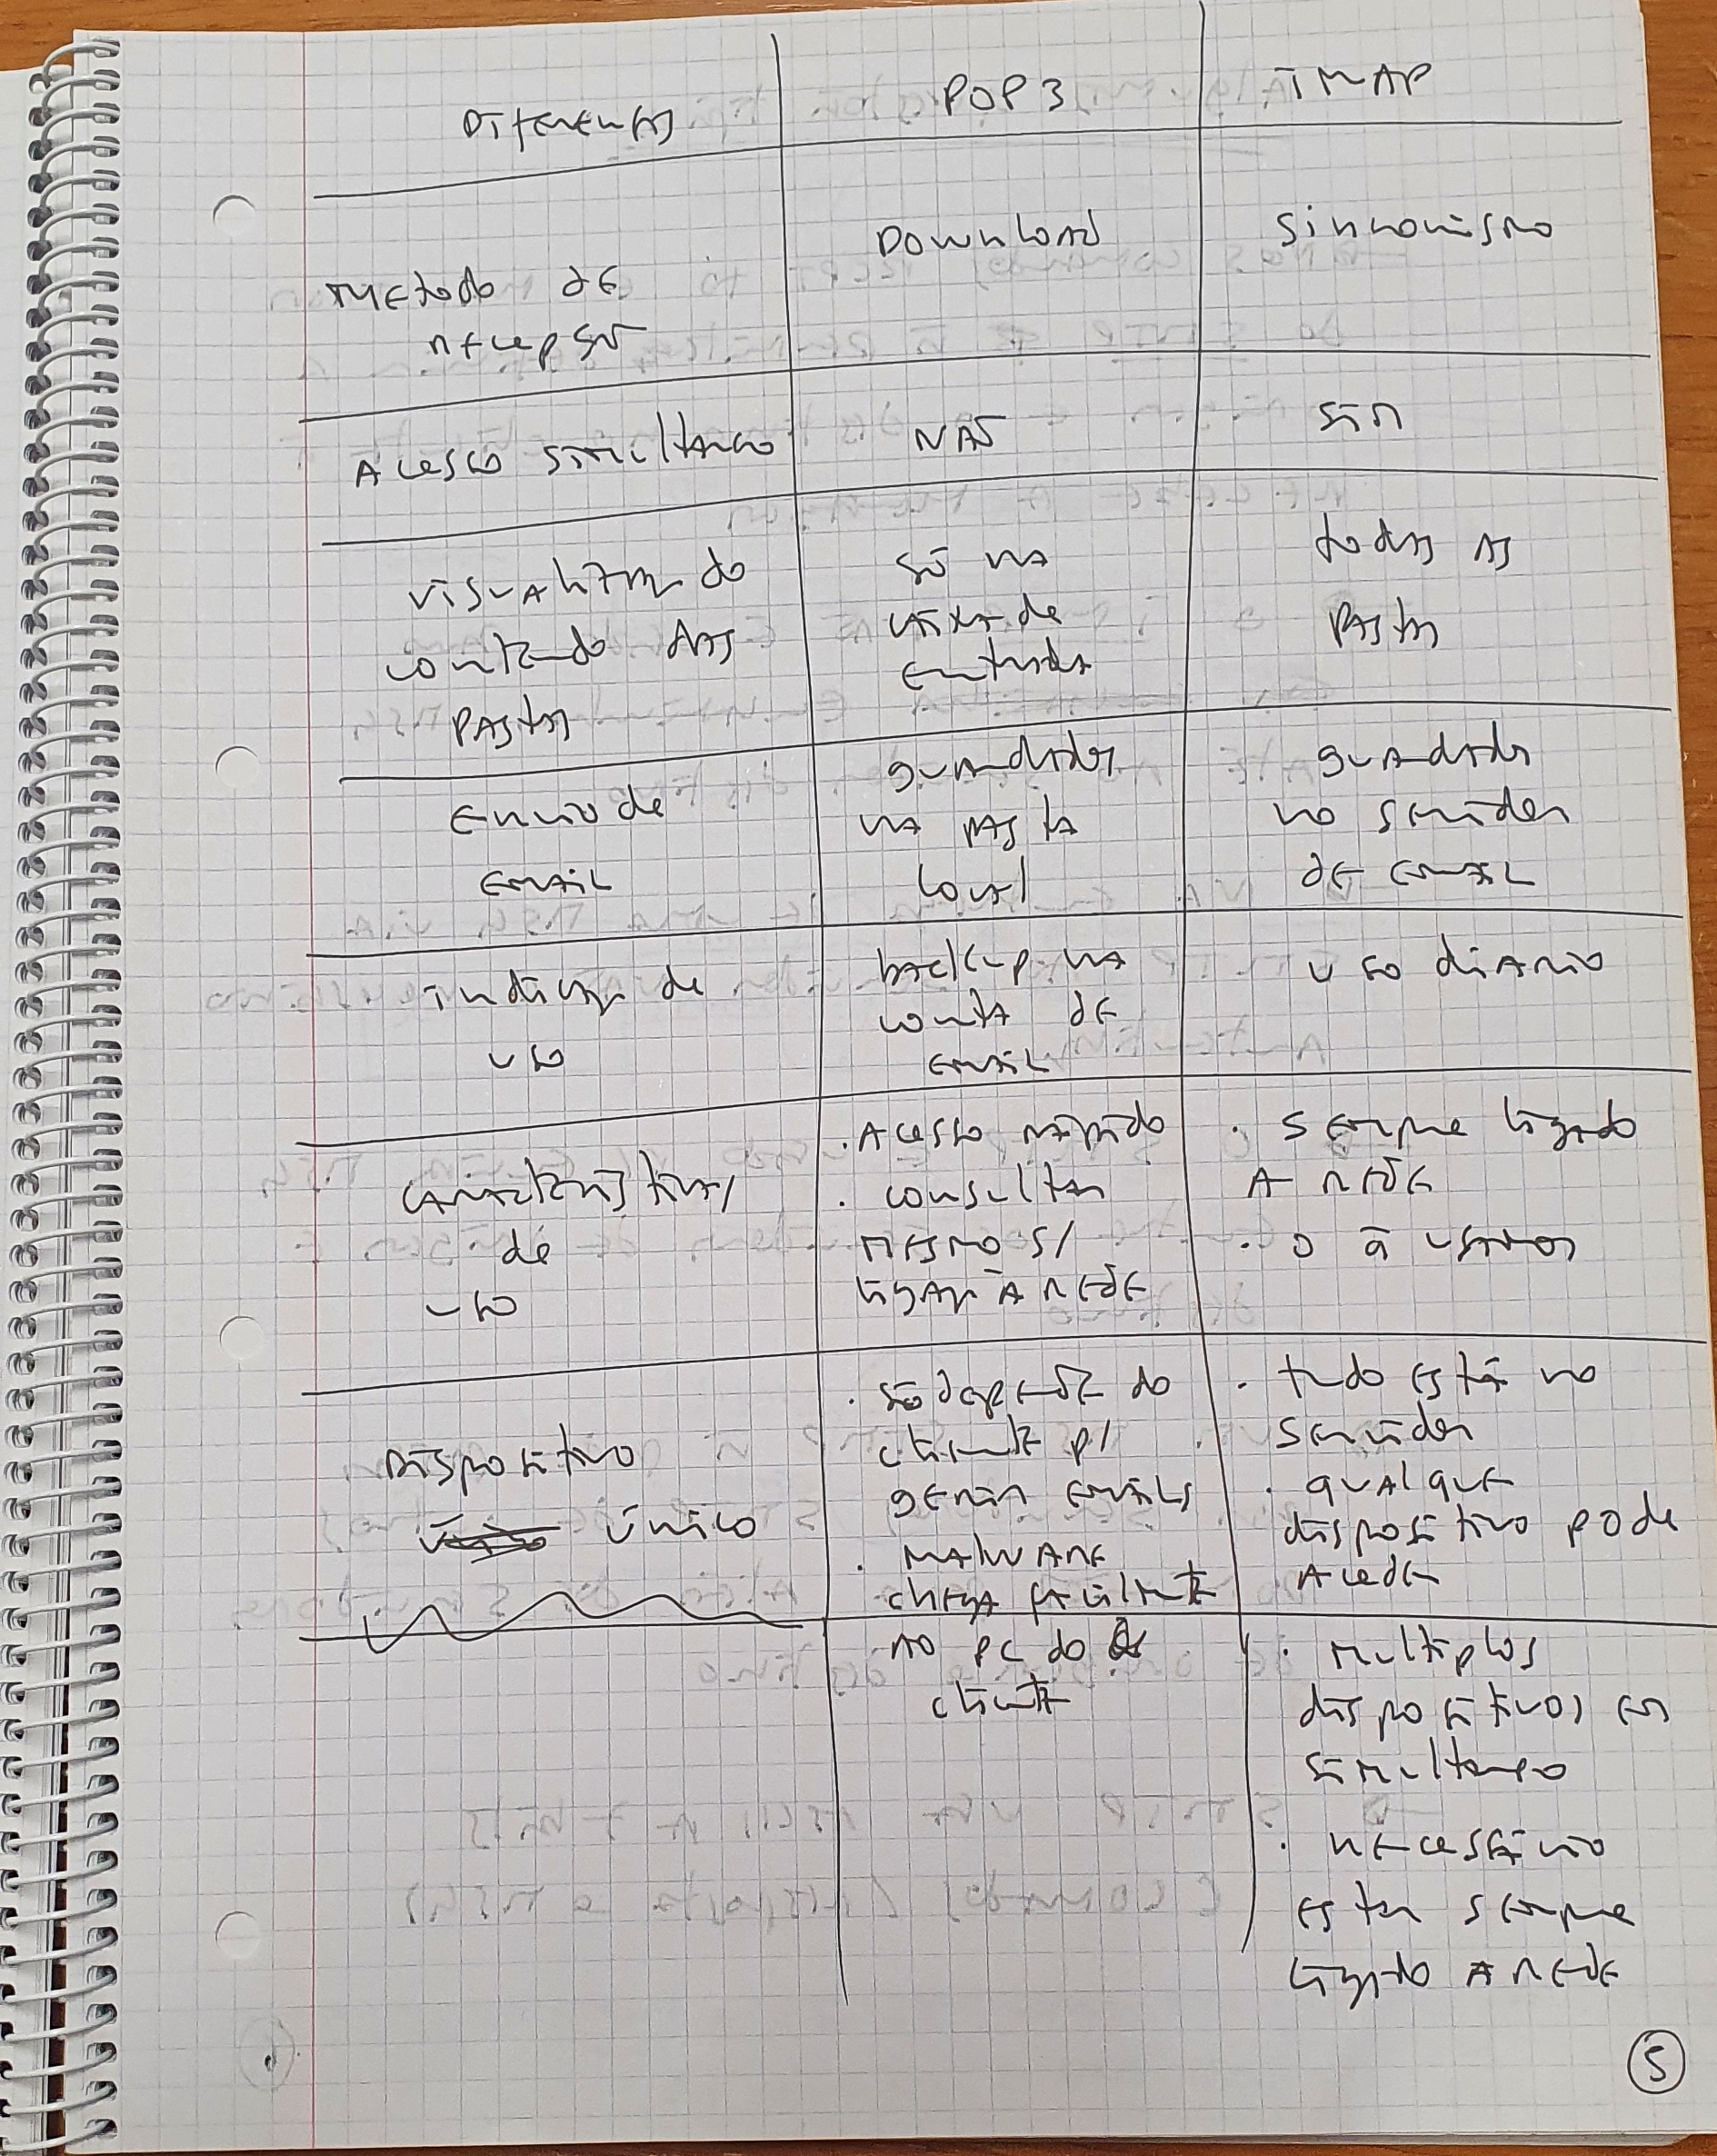 Diferenças
POP3
IMAP
Metodo de
recepção
Download
Sincronismo
Acesso simultaneo
NÃO
Sim
visualização do
conteudo das
pastas
só na
caixa de
entrada
todas as
pastas
Envio de
email
guardados
na pasta
local
guardados
no servidor
de email
indicação de
uso
backup na
conta de
email
uso diario
caracteristicas
de
uso
. Acesso rápido
. consultar
mesmo s/
ligação à rede
. sempre ligado
A rede
. o usamos
Dispositivo
único
. só depende do
cliente p/
gerir emails
. malware
chega facilmente
ao PC do
cliente
. tudo está no
servidor
. qualquer
dispositivo pode
aceder
. multiplos
dispositivos em
simultaneo
. necessário
estar sempre
ligado A rede
5